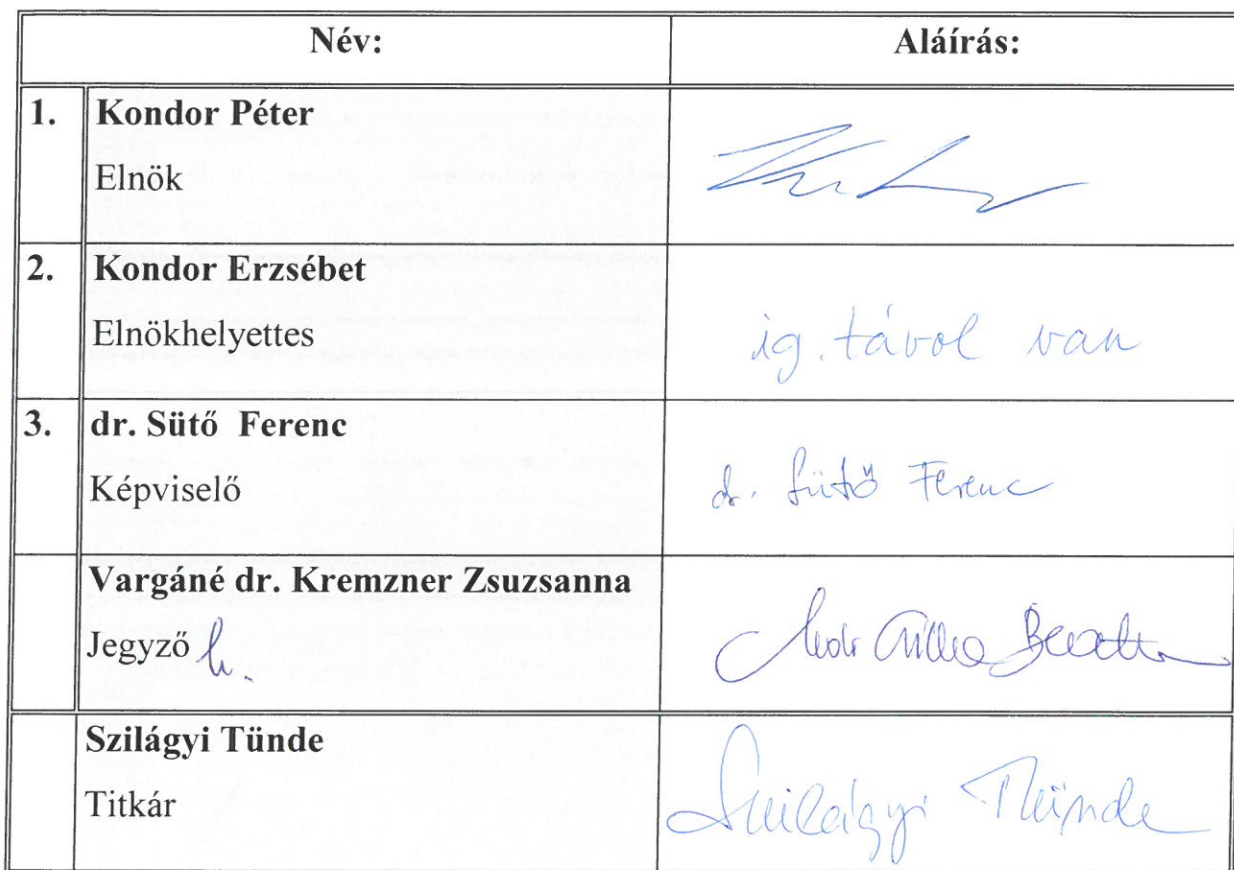 Név: Aláírás:
1. Kondor Péter
Elnök
2. Kondor Erzsébet
Elnökhelyettes ig. távol van
3. dr. Sütő Ferenc
Képviselő dr. Sütő Ferenc
Vargáné dr. Kremzner Zsuzsanna
Jegyző h.
Szilágyi Tünde
Titkár Szilágyi Tünde